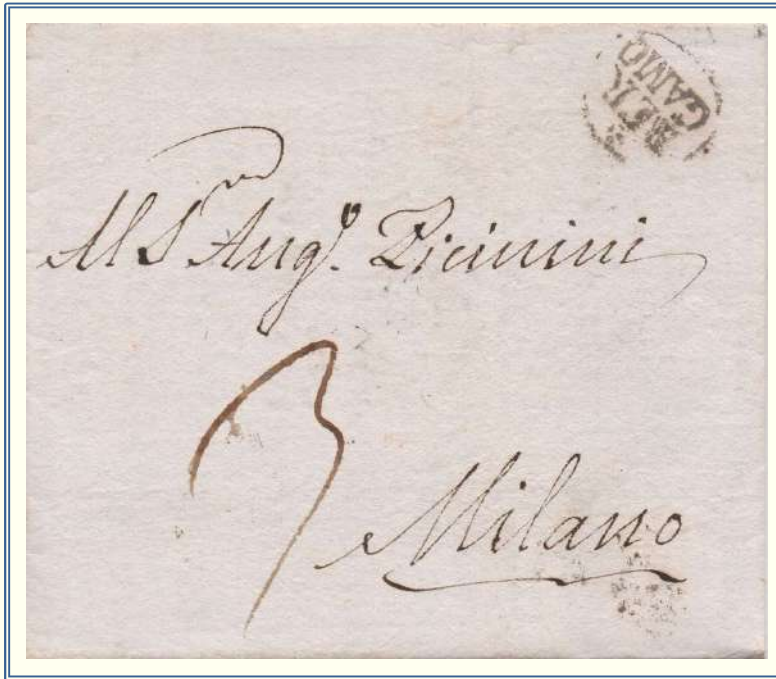 BER
GAMO
Al Sr Ango. Zicinini
3
Milano